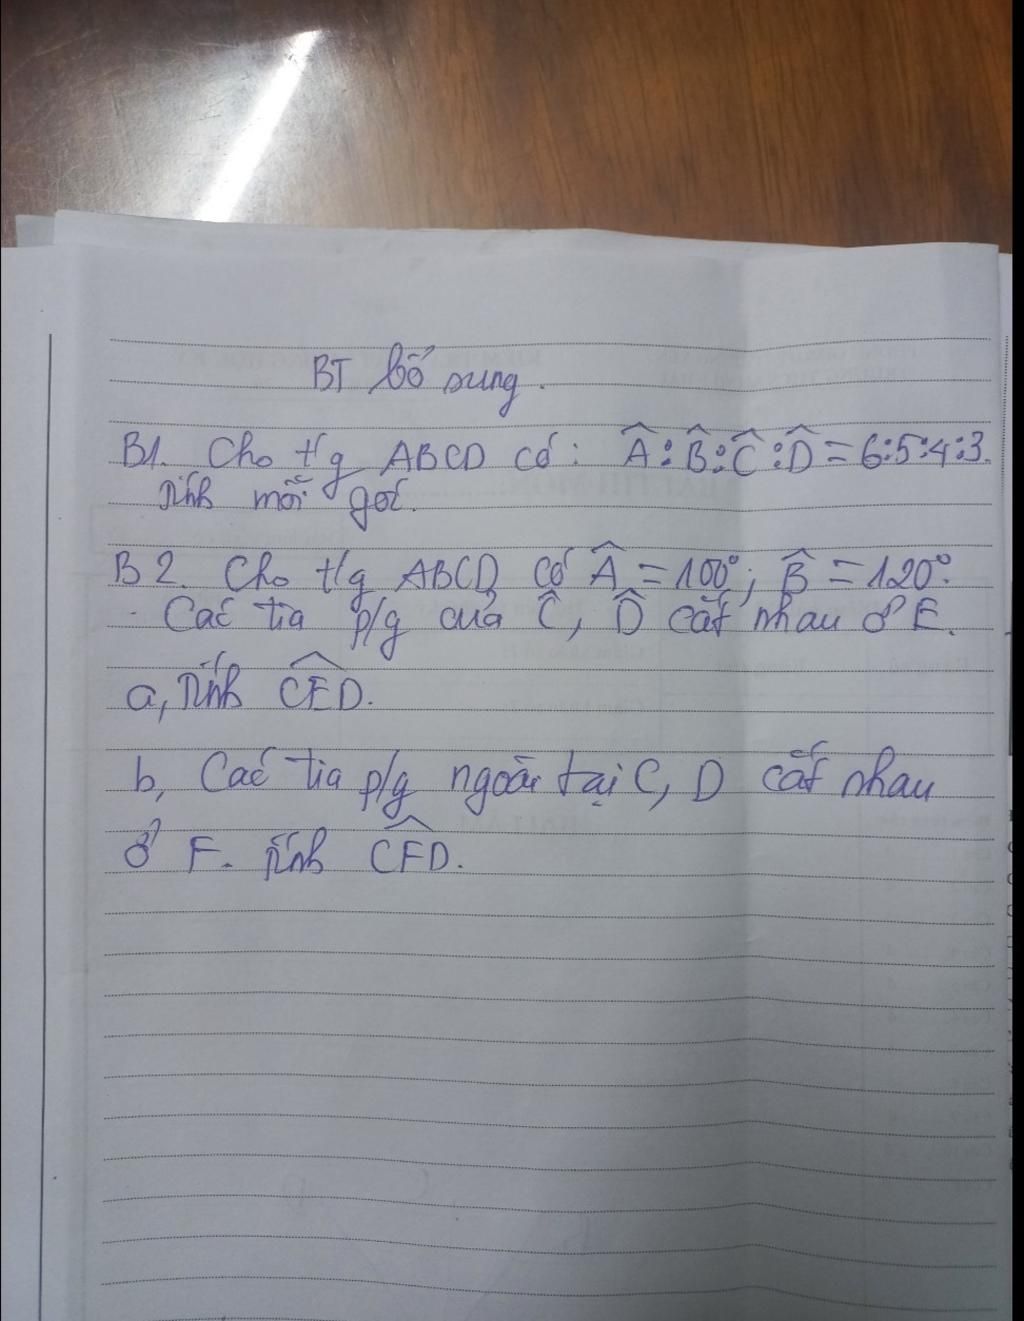 BT bổ sung.
B1. Cho t/g ABCD có: Â : B̂ : Ĉ : D̂ = 6:5:4:3.
Tính mỗi góc.
B2. Cho t/g ABCD có Â = 100°; B̂ = 120°.
Các tia p/g của Ĉ, D̂ cắt nhau ở E.
a, Tính CÊD.
b, Các tia p/g ngoài tại C, D cắt nhau
ở F. Tính CF̂D.